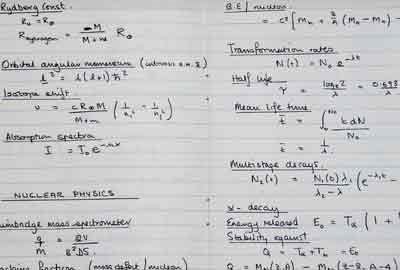 Rydberg Const.
R₀ = R∞
R_hydrogen = M / (M + m) R∞
Orbital angular momentum
l² = l(l+1)ħ²
Isotope shift.
ν = cR∞M / (M+m) (1/n₁² - 1/n₂²)
Absorption spectra
I = I₀e^(-nσx)
NUCLEAR PHYSICS
mass spectrometer
q/m = 2V / B²DS
fraction (mass defect / nucleon)
B.E / nucleon
= c² [Mn + (Mn - Mn) -
Transformation rates
N(t) = N₀ e^(-λt)
Half life
τ = log_e 2 / λ = 0.693 / λ
Mean life time
t̄ = ∫ t dN / N₀
t̄ = 1/λ
Multistage decays.
N₂(t) = N₁(0) λ₁ / (λ₂ - λ) (e^(-λ₁t -
α - decay
Energy released E₀ = Tα (1 +
Stability against
Q = Tα + Tb = E₀
Q = (Z,A) - (Z-2, A-4)